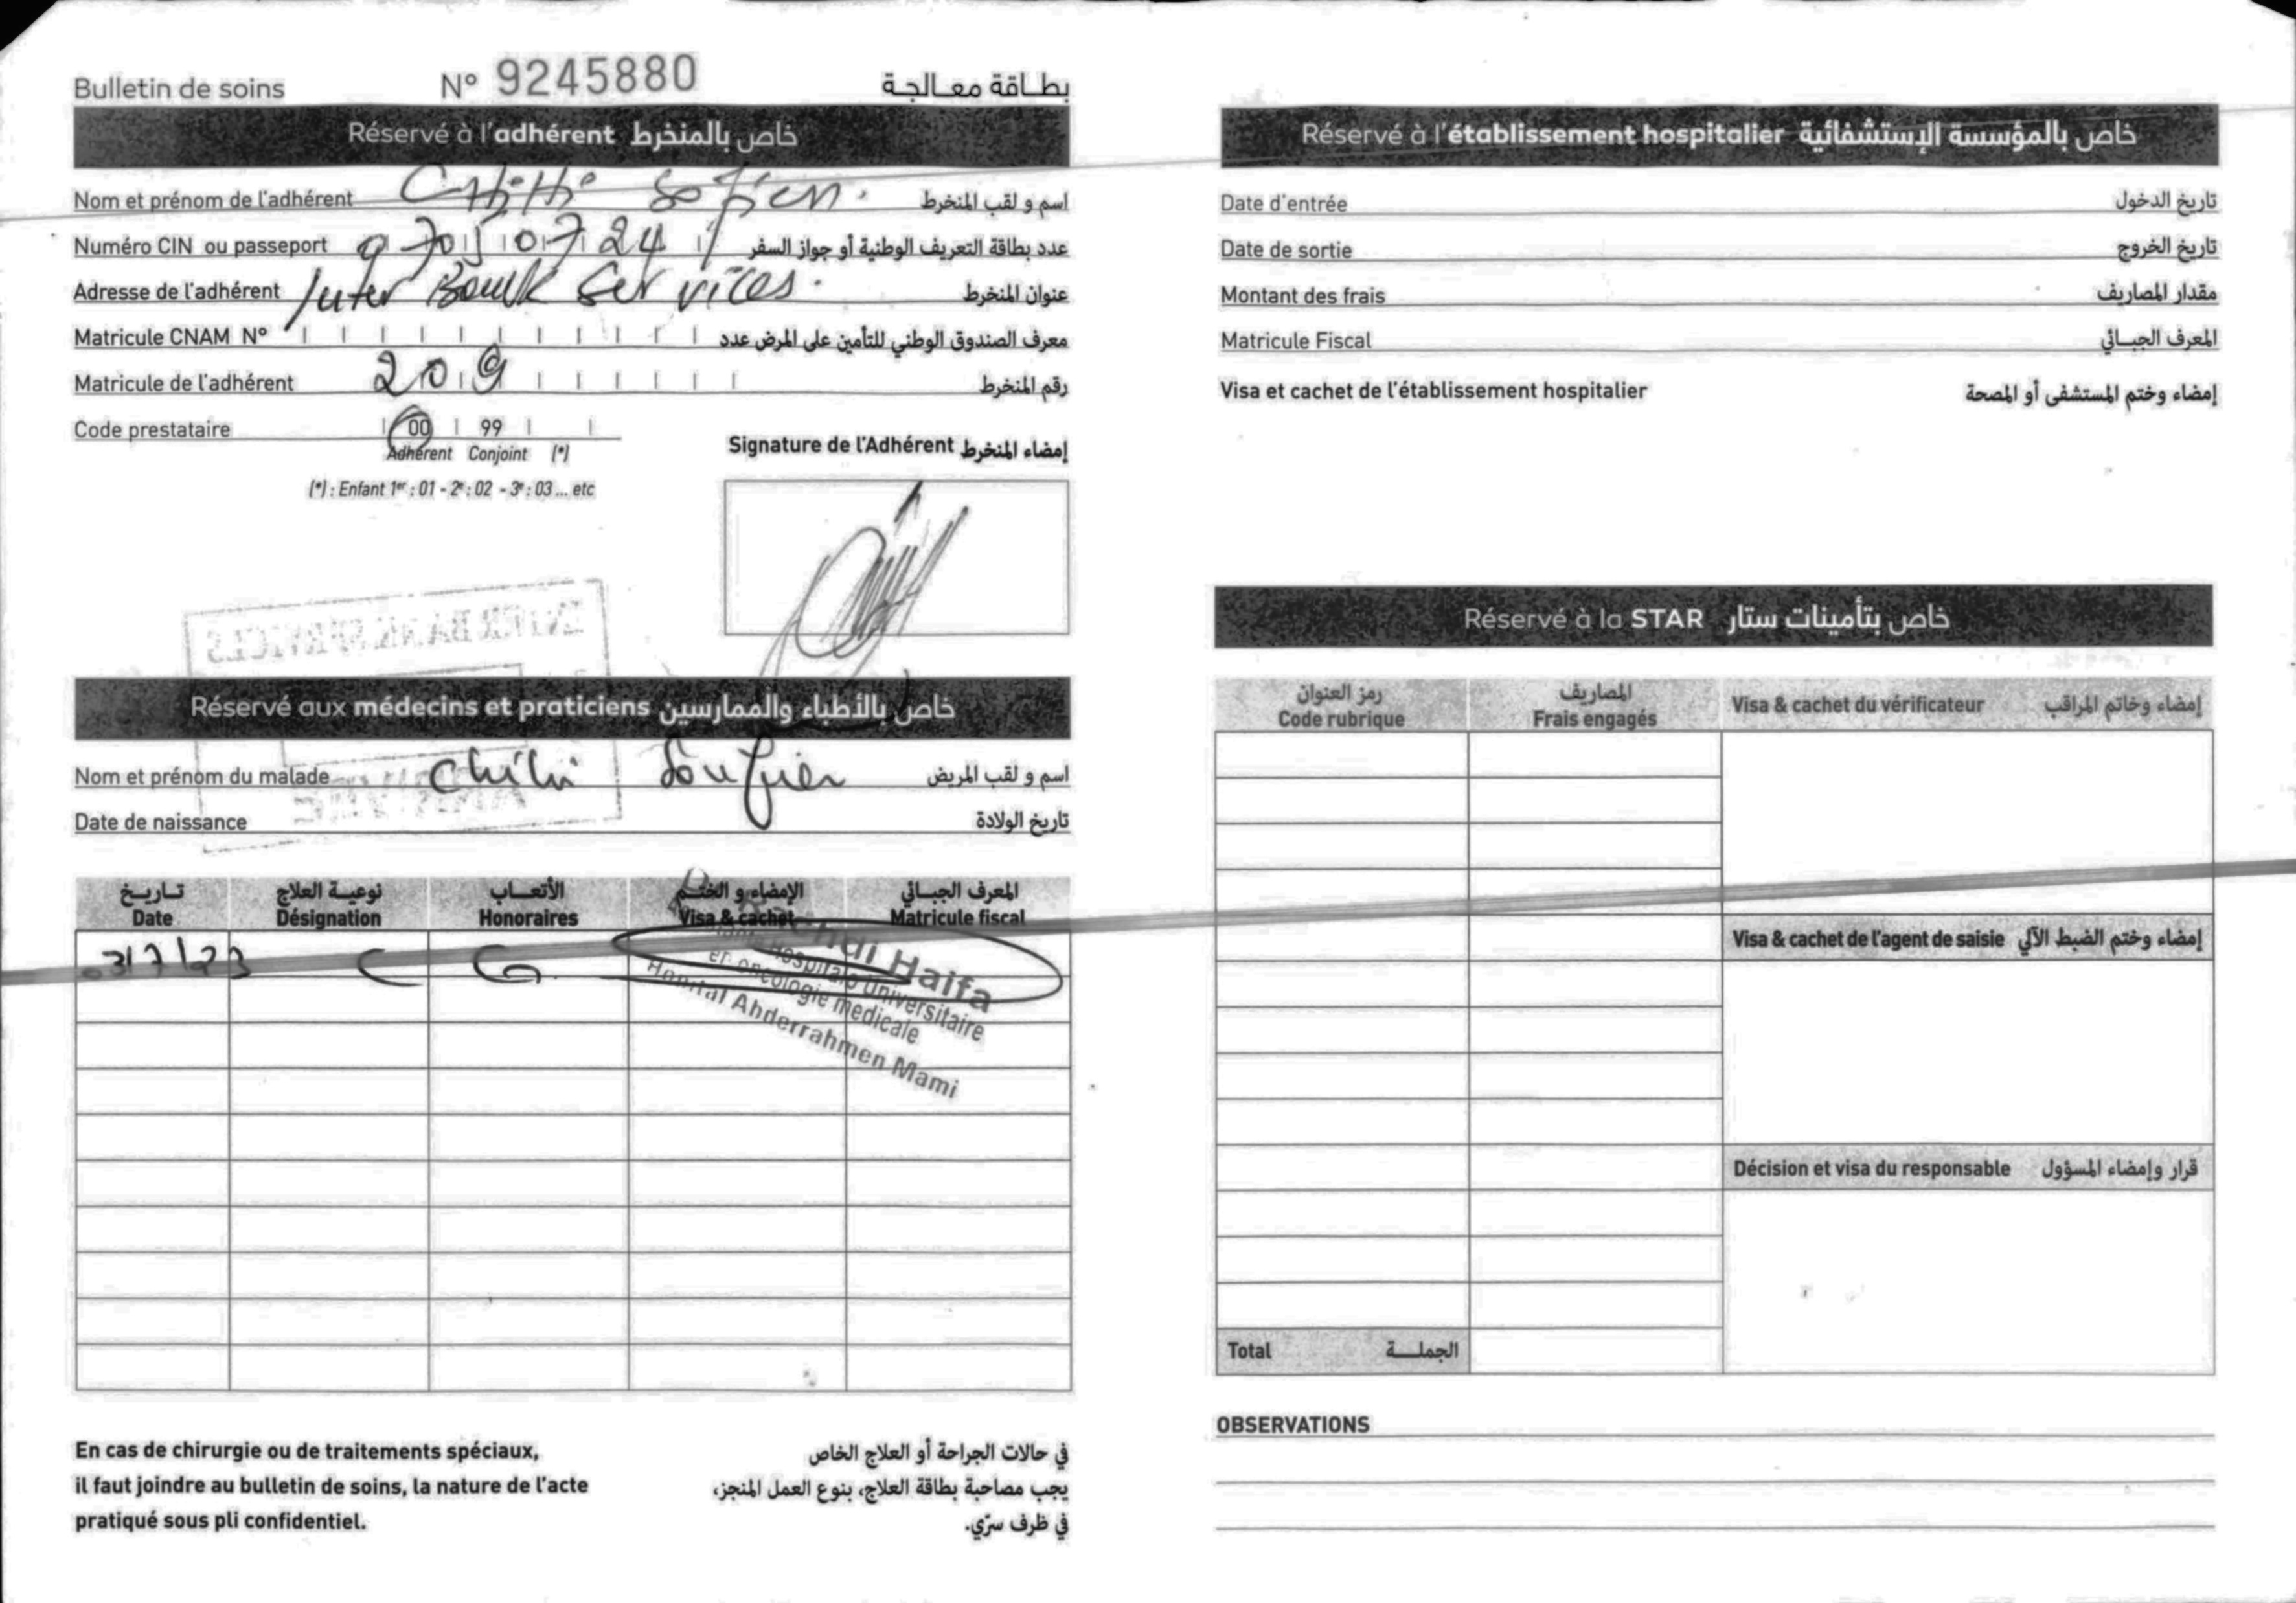 Bulletin de soins N° 9245880 بطاقة معالجة
Réservé à l'adhérent خاص بالمنخرط
Nom et prénom de l'adhérent Chihi Sofien. اسم و لقب المنخرط
Numéro CIN ou passeport عدد بطاقة التعريف الوطنية أو جواز السفر
Adresse de l'adhérent Inter Bank Services. عنوان المنخرط
Matricule CNAM N° معرف الصندوق الوطني للتأمين على المرض عدد
Matricule de l'adhérent 209 رقم المنخرط
Code prestataire 00 99
Adhérent Conjoint (*)
(*) : Enfant 1er : 01 - 2e : 02 - 3e : 03 ... etc
Signature de l'Adhérent إمضاء المنخرط
INTER BANK SERVICES
Réservé aux médecins et praticiens خاص بالأطباء والممارسين
Nom et prénom du malade Chihi Soufien اسم و لقب المريض
ARRIVEE
Date de naissance تاريخ الولادة
تاريخ نوعية العلاج الأتعاب الإمضاء و الختم المعرف الجبائي
Date Désignation Honoraires Visa & cachet Matricule fiscal
03/7/23 C G
Haifa
Hospitalo Universitaire
en oncologie medicale
Hopital Abderrahmen Mami
En cas de chirurgie ou de traitements spéciaux,
il faut joindre au bulletin de soins, la nature de l'acte
pratiqué sous pli confidentiel.
في حالات الجراحة أو العلاج الخاص
يجب مصاحبة بطاقة العلاج، بنوع العمل المنجز،
في ظرف سرّي.
Réservé à l'établissement hospitalier خاص بالمؤسسة الإستشفائية
Date d'entrée تاريخ الدخول
Date de sortie تاريخ الخروج
Montant des frais مقدار المصاريف
Matricule Fiscal المعرف الجبائي
Visa et cachet de l'établissement hospitalier إمضاء وختم المستشفى أو المصحة
Réservé à la STAR خاص بتأمينات ستار
رمز العنوان المصاريف
Code rubrique Frais engagés Visa & cachet du vérificateur إمضاء وخاتم المراقب
Visa & cachet de l'agent de saisie إمضاء وختم الضبط الآلي
Décision et visa du responsable قرار وإمضاء المسؤول
Total الجملة
OBSERVATIONS